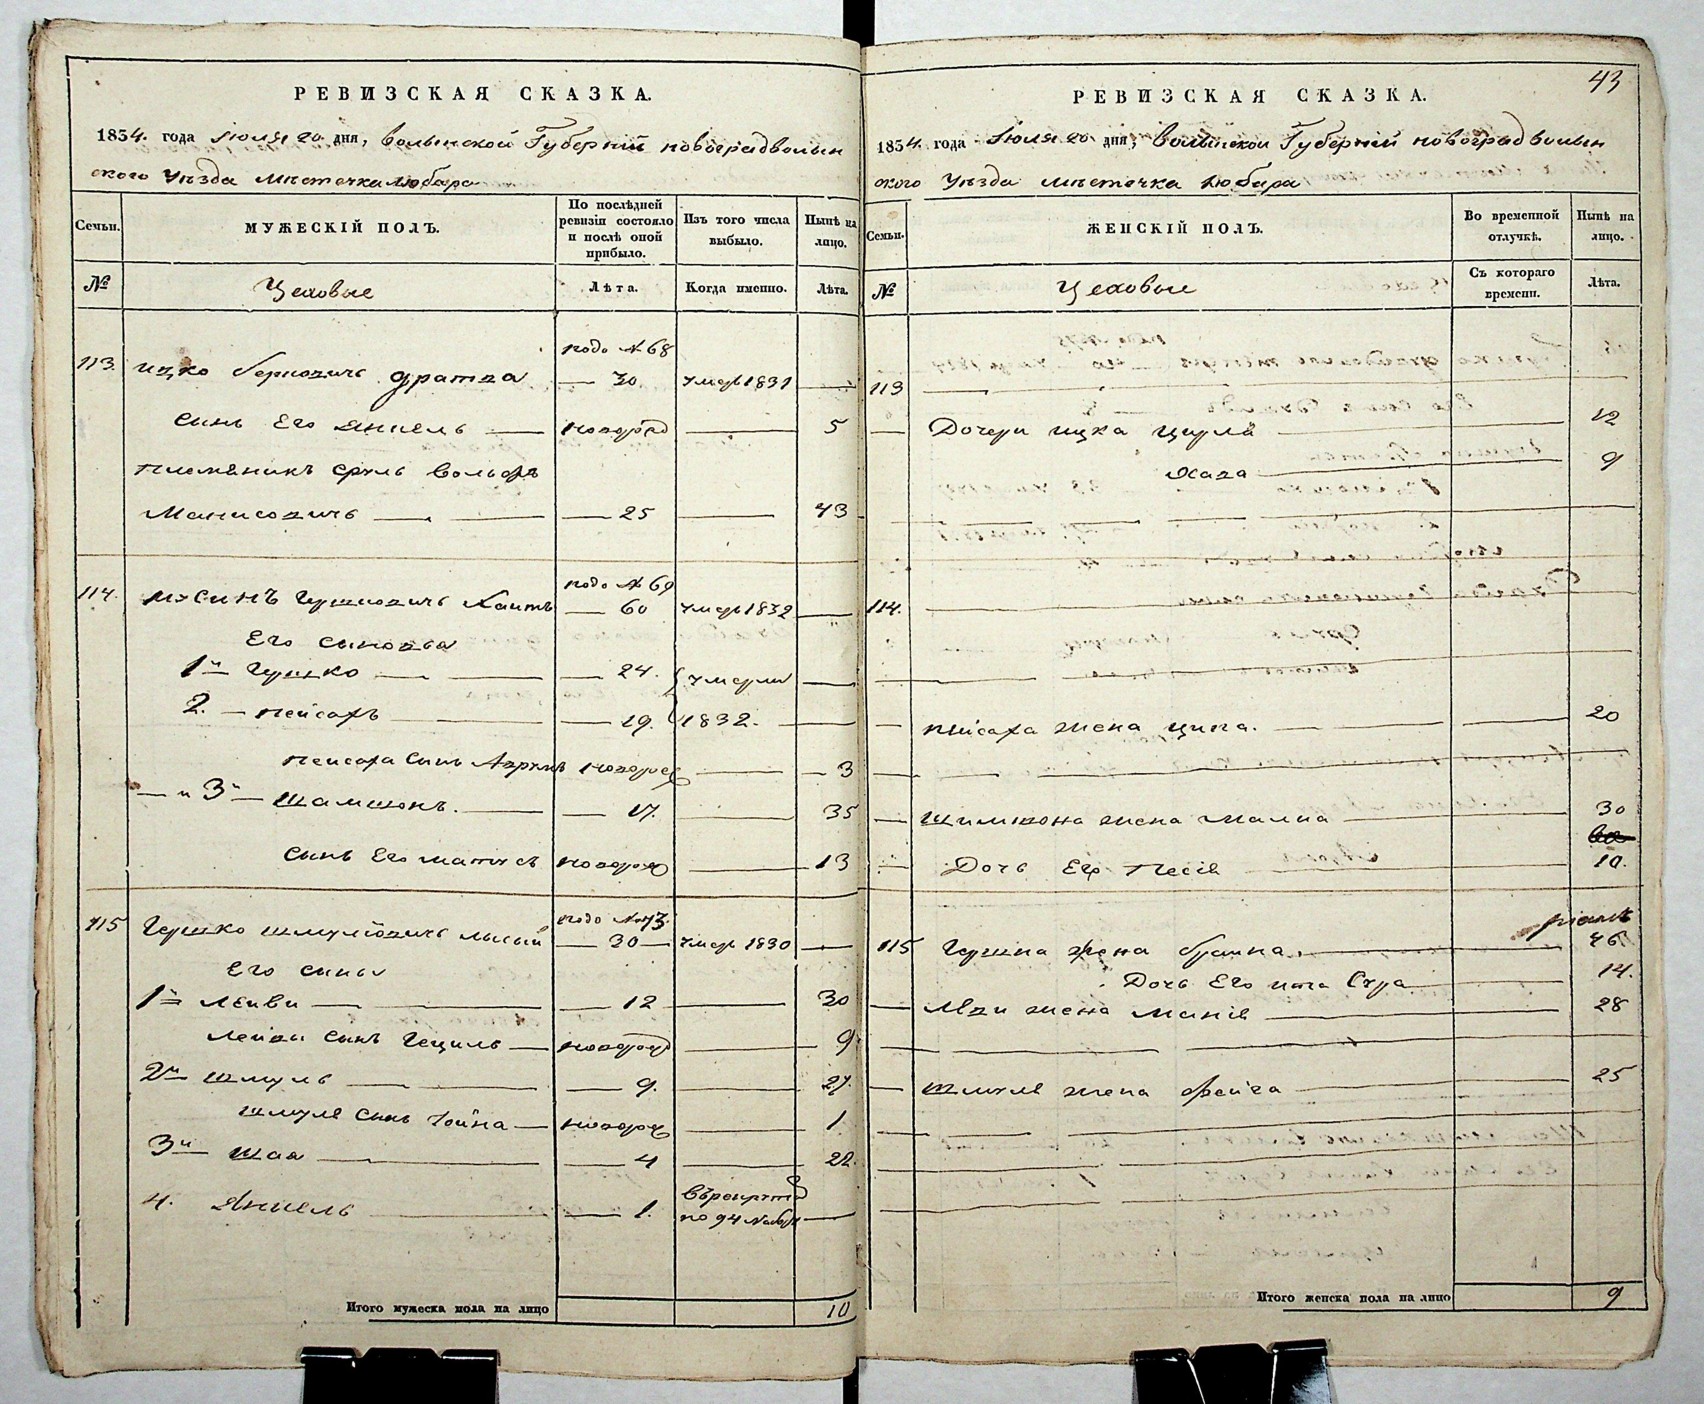 РЕВИЗСКАЯ СКАЗКА.
1854. года Июля 20 дня, Волынской Губерніи новоградволын
ского Уѣзда мѣстечка Любара
Семьи.
МУЖЕСКІЙ ПОЛЪ.
По послѣдней ревизіи состояло и послѣ оной прибыло.
Изъ того числа выбыло.
Нынѣ на лицо.
№
Цеховые
Лѣта.
Когда именно.
Лѣта.
подъ № 68
113. Ицко Берковичъ дратва — 30 умеръ 1831 —
Сынъ Его Янкель — новорож — 5
племяникъ Сруль Вольфъ
Манисовичъ — 25 — 43
подъ № 69
114. Мусинъ Гершковичъ — 60 умеръ 1832 —
Его сыновья
1й Гершко — 24. умерли —
2. — пейсахъ — 19. 1832. —
пейсаха сынъ новорож — 3
— и 3й — шамшонъ. — 17. — 35
сынъ Его матусъ новорож — 13
подъ № 73.
115 Гершко шмулiовичъ лысый — 30 — умеръ 1830 —
Его сыны
1й Лейви — 12 — 30
Лейви сынъ Гециль — новорож — 9
2й шмуль — 9. — 27.
шмуля сынъ — новорож — 1
3й шая — 4 — 22.
4. Янкель — 1. —
по 94
Итого мужеска пола на лицо 10
43
РЕВИЗСКАЯ СКАЗКА.
1854. года Июля 20 дня, Волынской Губерніи новоградволын
ского Уѣзда мѣстечка Любара
Семьи.
ЖЕНСКІЙ ПОЛЪ.
Во временной отлучкѣ.
Нынѣ на лицо.
№
Цеховые
Съ котораго времени.
Лѣта.
113 —
— Дочери ицка Цирля — 12
Хава — 9
114. —
— пейсаха жена ципа. — 20
— шимшона жена Малка — 30
— Дочь Его Песя — 10.
115 Гершка жена браина. — 46
Дочь Его ита Сура — 14.
— Леви жена Маня — 28
— шмуля жена фейга — 25
Итого женска пола на лицо 9